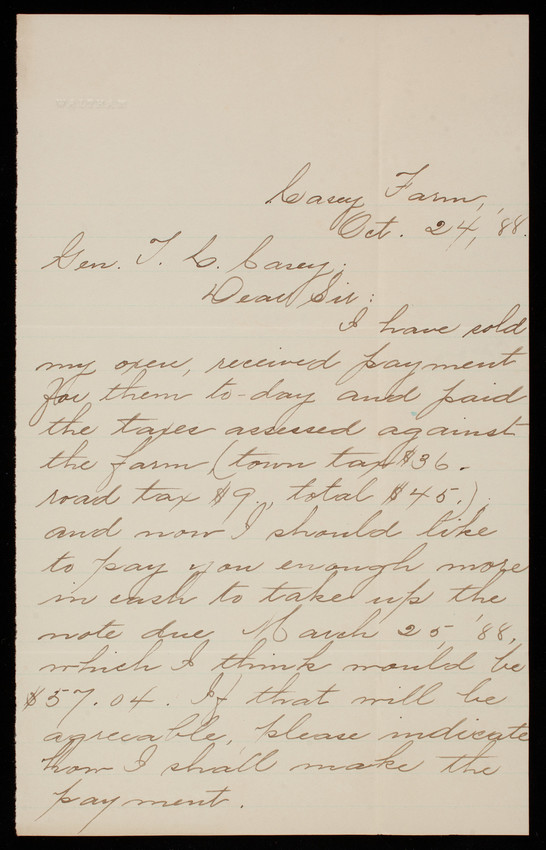 Casey Farm,
Oct. 24, '88.
Gen. T. L. Casey:
Dear Sir:
I have sold
my oxen, received payment
for them to-day and paid
the taxes assessed against
the farm (town tax $36.
road tax $9., total $45.)
and now I should like
to pay you enough more
in cash to take up the
note due March 25, '88,
which I think would be
$57.04. If that will be
agreeable, please indicate
how I shall make the
payment.